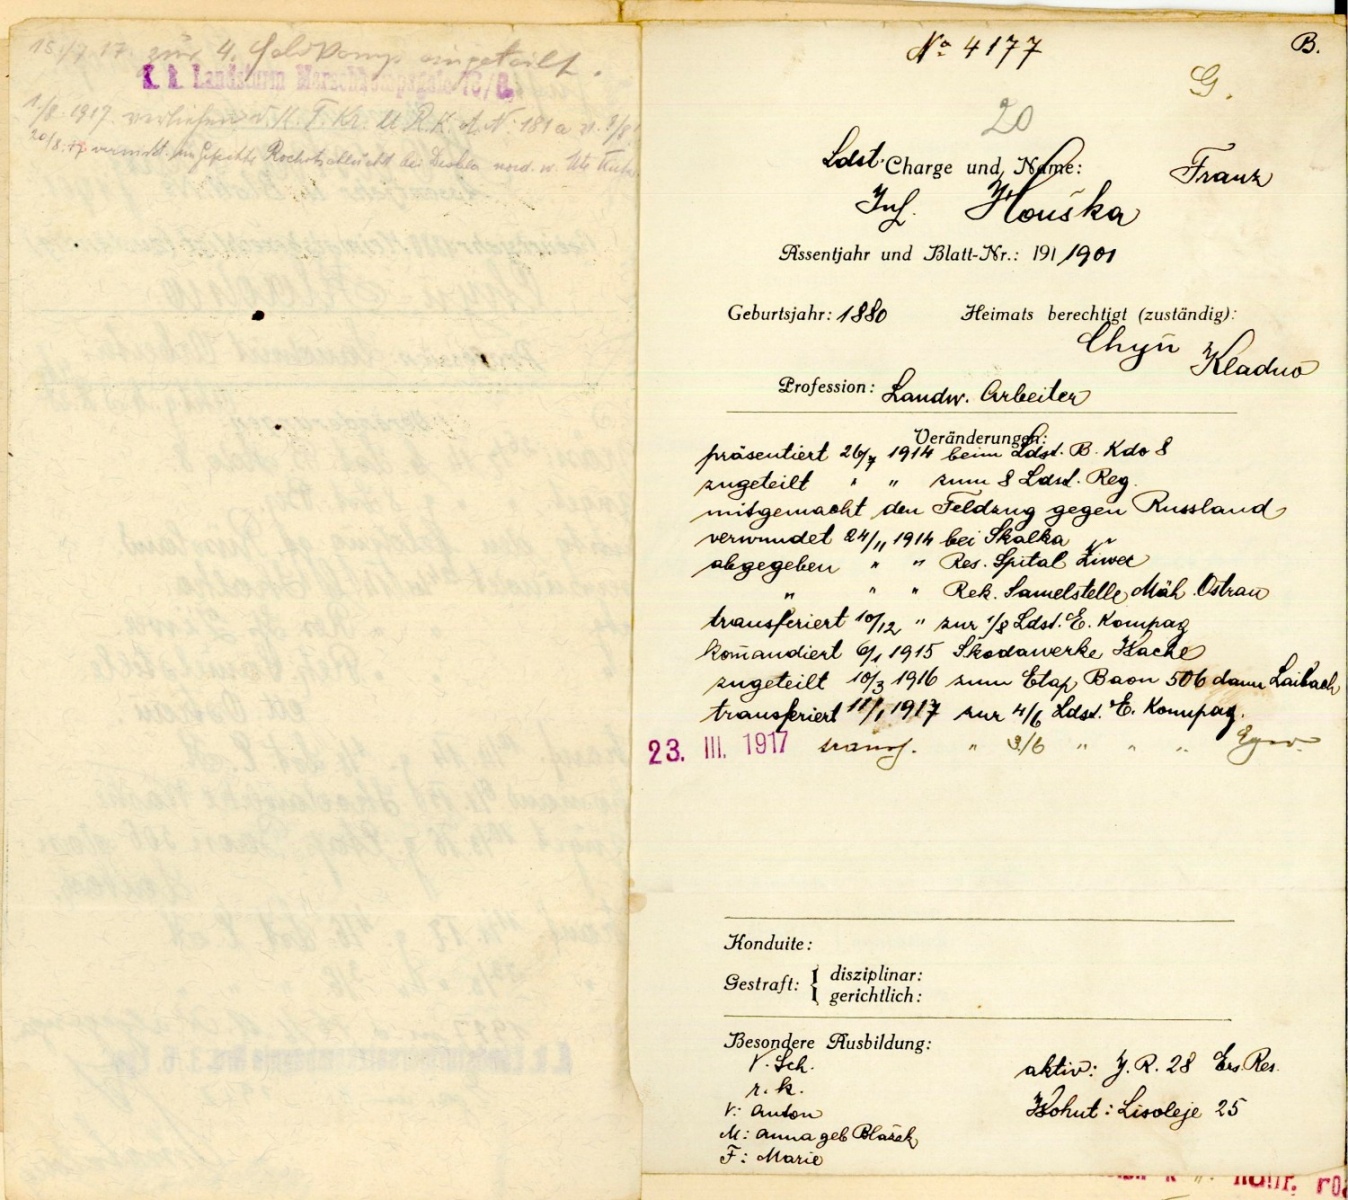 15./7. 17. zur 4. Feldkomp eingeteilt.
K. k. Landsturm Marschkompagnie
1./8. 1917. verliehen d. K. T. Kr. U R.K. Nº 181a v.
20/8. 17 vermisst im Gefechte
Nº 4177
B.
G.
20
Ldst. Charge und Name: Franz
Inf. Houška
Assentjahr und Blatt-Nr.: 191 1901
Geburtsjahr: 1880 Heimats berechtigt (zuständig):
Chyň Kladno
Profession: Landw. Arbeiter
Veränderungen:
präsentiert 26/7 1914 beim Ldst. B. Kdo 8
zugeteilt " " zum 8 Ldst. Reg.
mitgemacht den Feldzug gegen Russland
verwundet 24/11 1914 bei Skalka
abgegeben " " Res. Spital Ziwec
" " " Rek. Samelstelle Mäh. Ostrau
transferiert 10/12 " zur 1/8 Ldst. E. Kompag
kom̄andiert 6/1 1915 Skodawerke
zugeteilt 10/3 1916 zum Etap Baon 506 dann Laibach
transferiert 11/1 1917 zur 4/6 Ldst. E. Kompag.
23. III. 1917 transf. " 3/6 " " "
Konduite:
Gestraft: { disziplinar:
gerichtlich:
Besondere Ausbildung:
V. Sch. aktiv: J. R. 28 Ers. Res.
r. k.
V: Anton Wohnt: Lisoleje 25
M: Anna geb Blažek
F: Marie